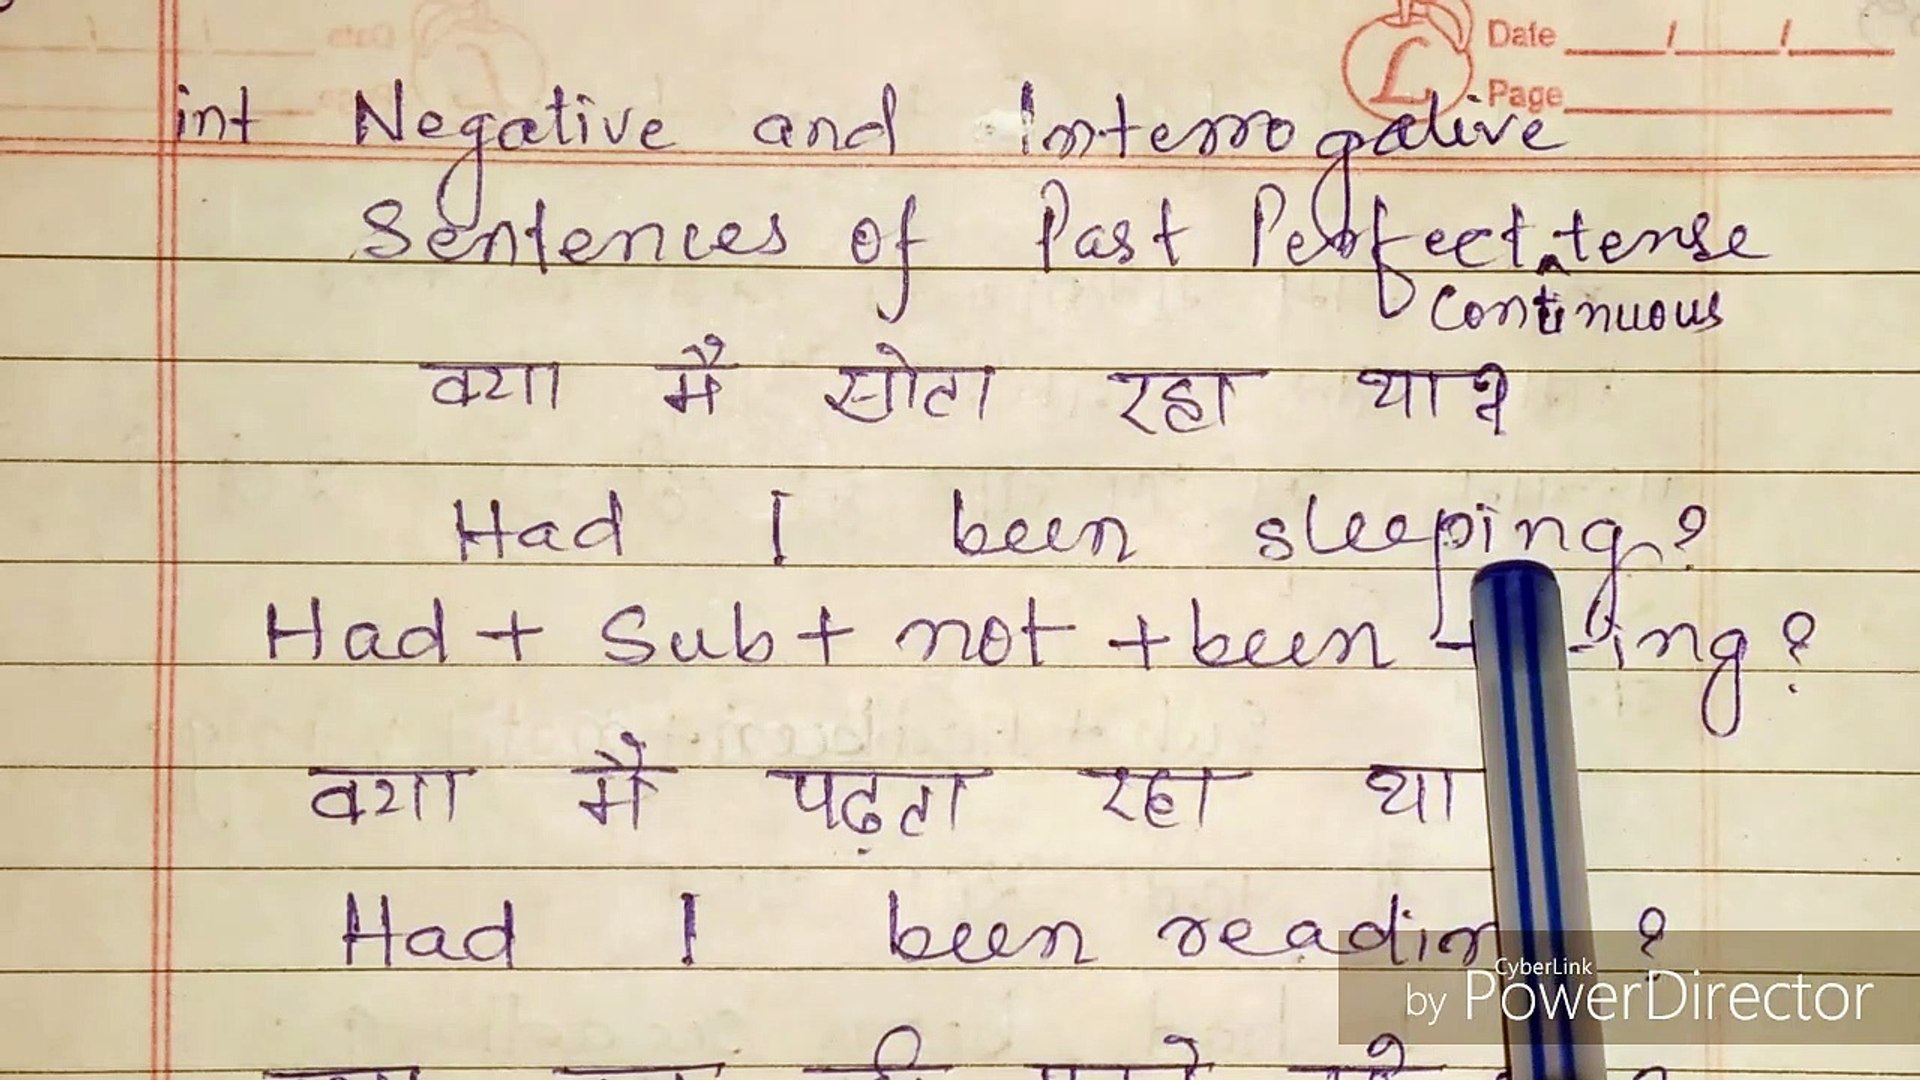 Date / / /
Page
int Negative and Interrogative
Sentences of Past Perfect tense
Continuous
क्या मैं सोता रहा था?
Had I been sleeping?
Had + Sub + not + been + ing?
क्या मैं पढ़ता रहा था
Had I been readin ?
CyberLink
by PowerDirector